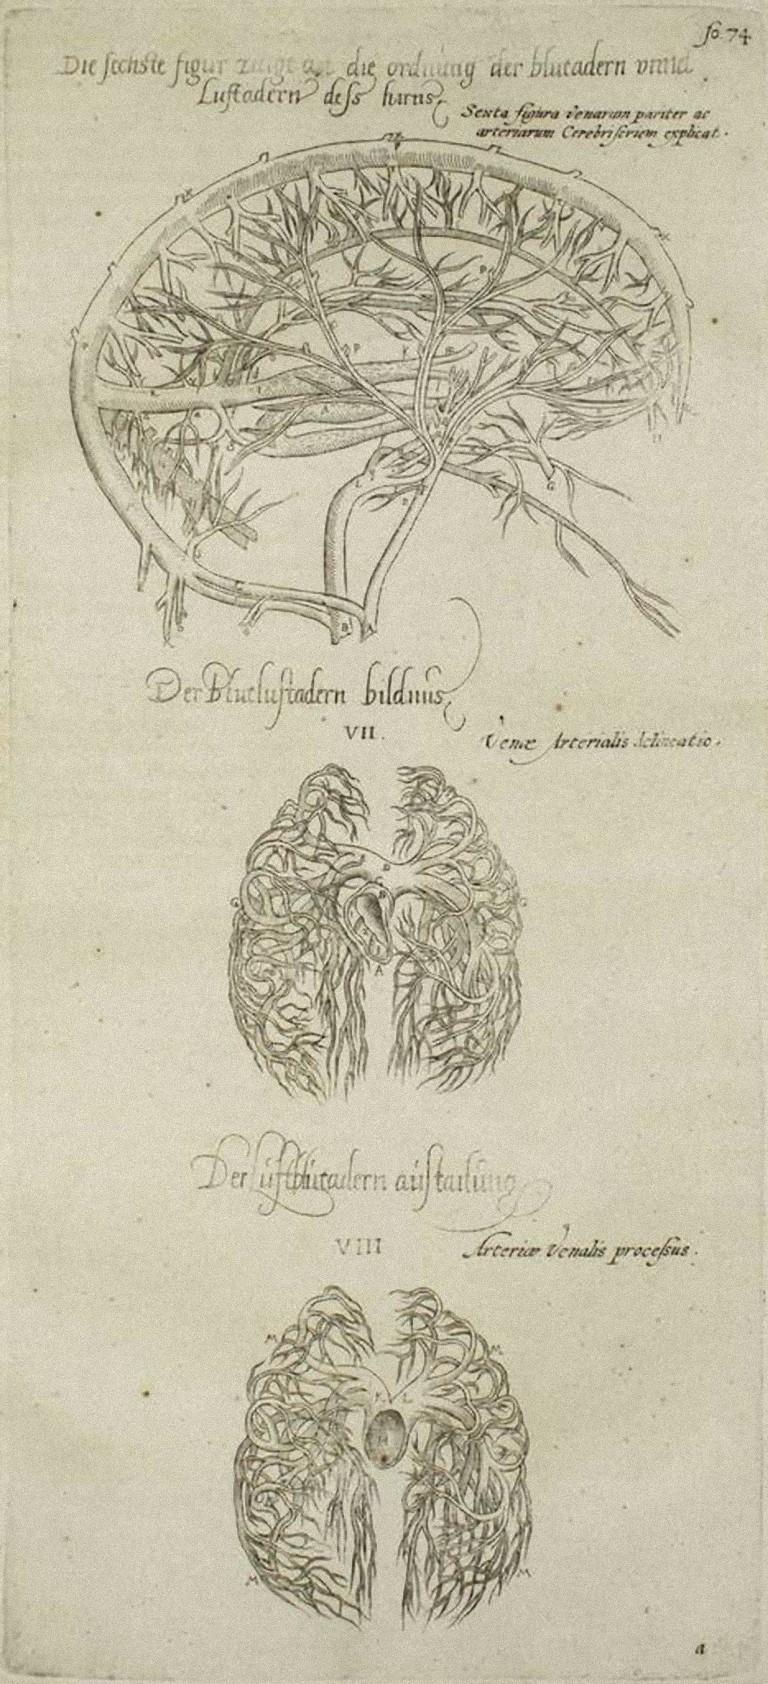 fo. 74
Die sechste figur zaigt an die ordnung der blutadern vnnd
Luftadern dess hirns
Sexta figura venarum pariter ac
arteriarum Cerebri seriem explicat.
Der Blutluftadern bildnus
VII.
Venæ Arterialis delineatio.
Der luftblutadern austailung
VIII
Arteriæ Venalis processus.
a